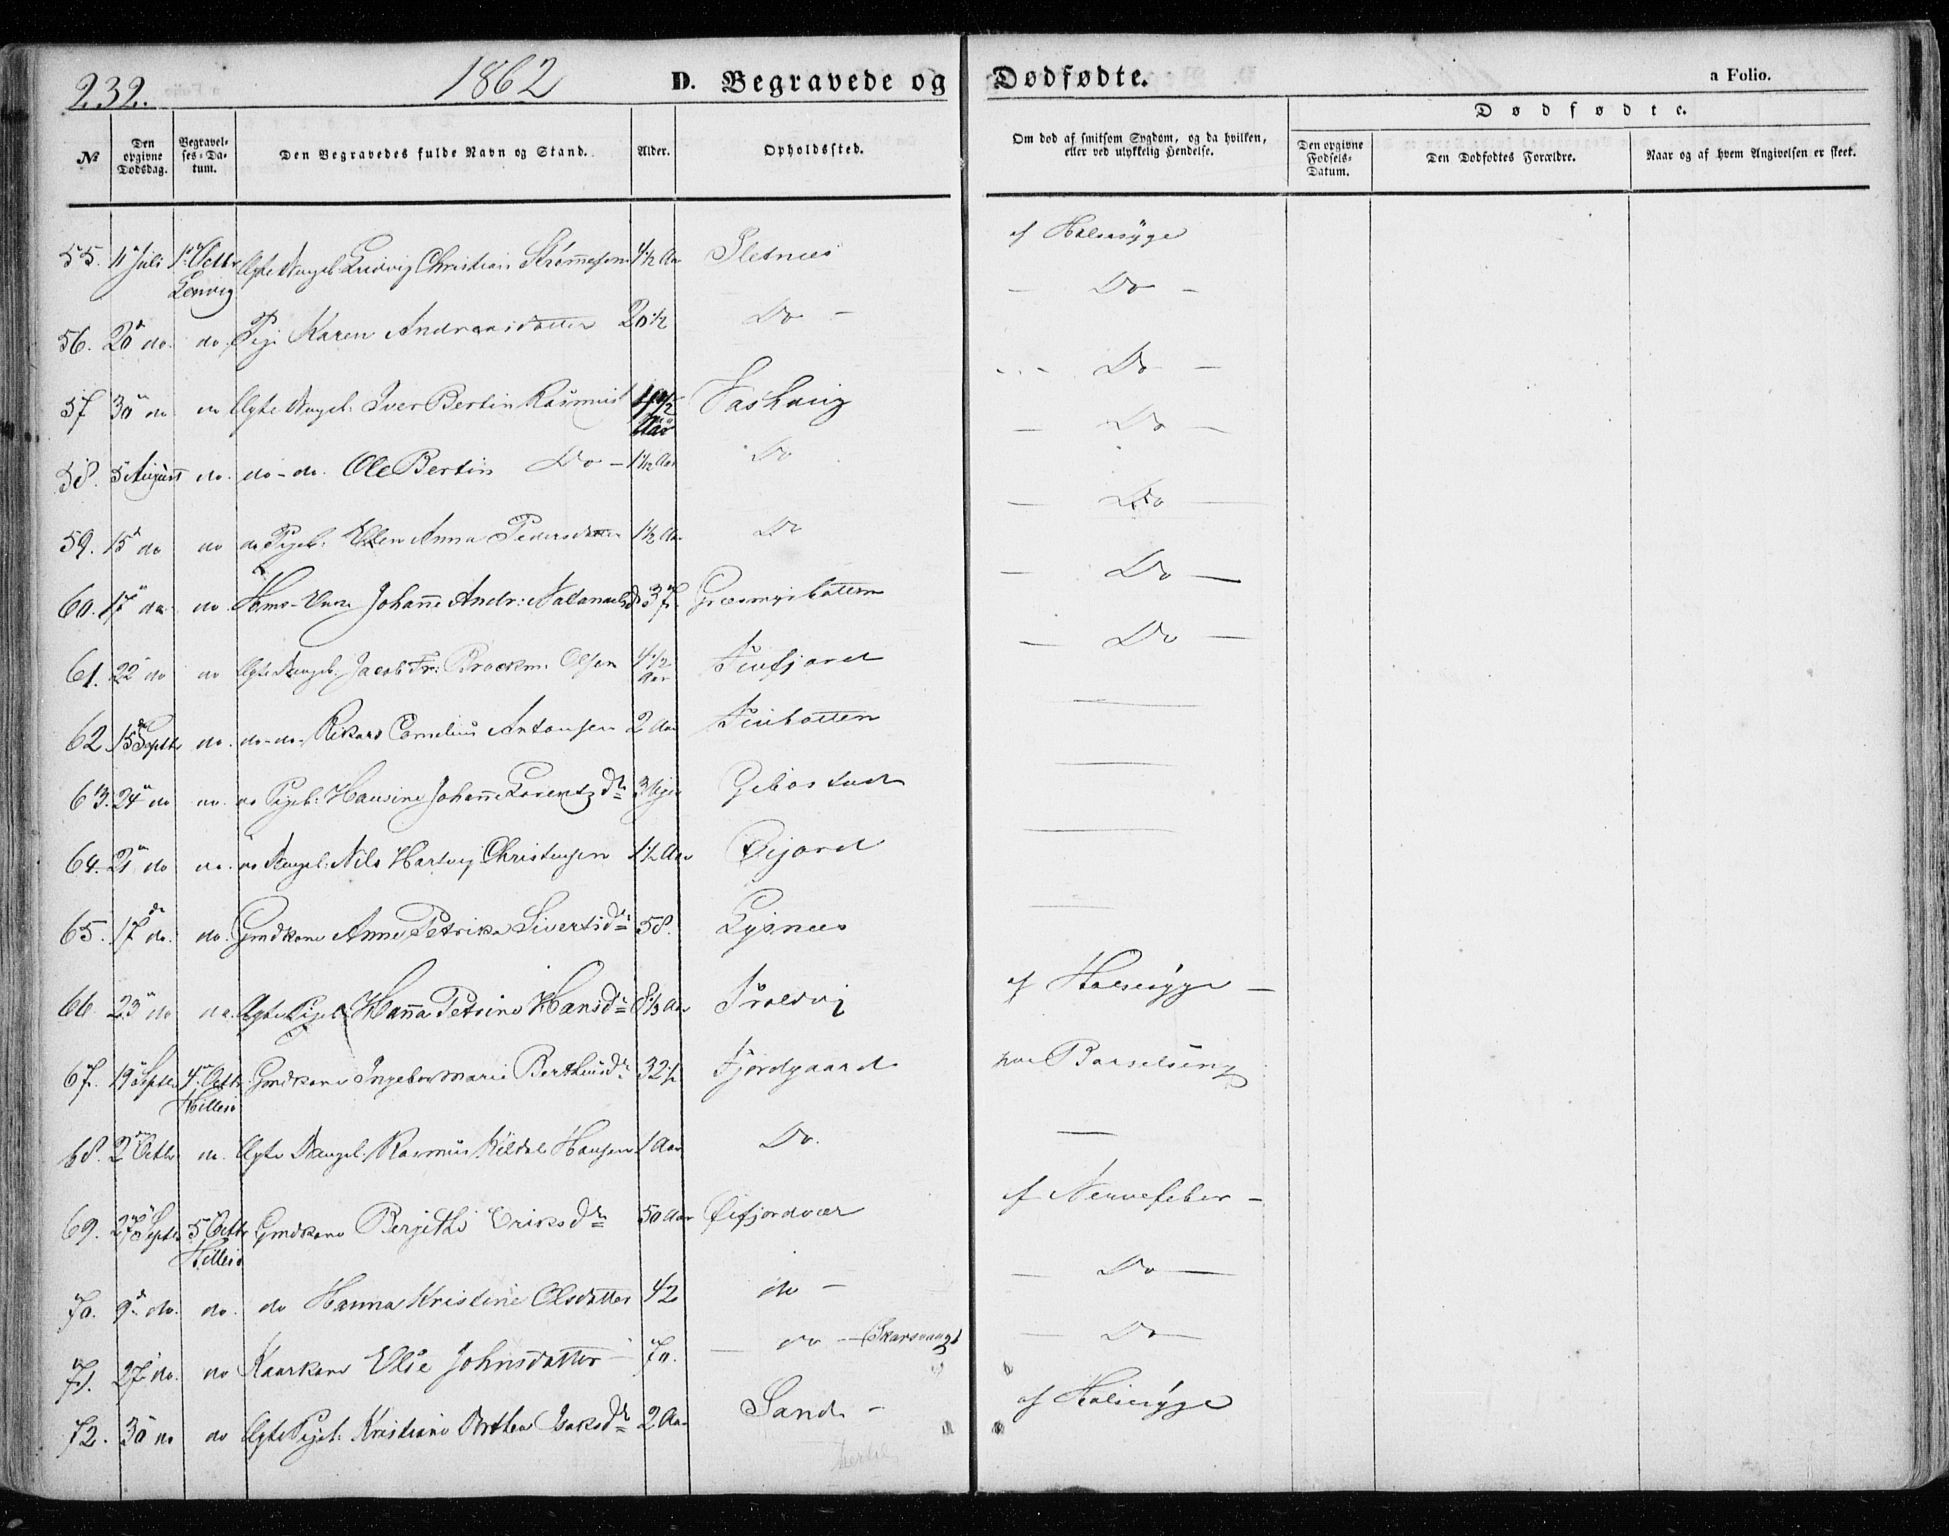 232.
1862
D. Begravede og Dødfødte.
a Folio.
No
Den opgivne Dødsdag.
Begravelses-Datum.
Den Begravedes fulde Navn og Stand.
Alder.
Opholdssted.
Om død af smitsom Sygdom, og da hvilken, eller ved ulykkelig Hendelse.
Dødfødte.
Den opgivne Fødsels-Datum.
Den Dødfødtes Forældre.
Naar og af hvem Angivelsen er skeet.
55. 11 Juli 1 Octbr Ludvig Christian 4½ Aar Sletnes af Halssyge
Lenvig
56. 20 do. do. Pige Karen Andreasdatter 20½ Do - - Do -
57 30 do Iver Bertin Rasmus Vaskvig Do -
Aar
58. 5 August do. do - do. Ole Bertin Do - 1½ Aar Do - Do -
59. 15 do do do Pigeb: Ellen Anna Pedersdatter 1½ Aar Do - Do -
60. 17 do do. Johanne Andr: 37 Græsmyrbotten - Do -
61. 22 do do Jacob Fr: Brockm: Olsen 4½ Aar Finfjord - Do -
62. 15 Septbr do. do - do - Rikard Cornelius Antonsen 2 Aar Finbotten
63. 24 do do. do Pigeb: Hansine Johanne Lorentz Dr 3 Gibostad
64. 21 do do. do Nils Hartvig Christensen 1½ Aar Øijord
65. 17 do. do. Gmdkone Anne Petrika Siverts Dr 58. Lysnes
66 23 do do. Ægte Pigeb: Hanna Petrine Hans Dr Aar Troldvig af Halssyge -
67. 19 Septbr 4 Octbr Gmdkone Ingebor Marie Bertheus Dr 32½ Fjordgaard Barselseng
Hillesø
68. 2 Octbr do. Ægte Rasmus Kildal Hansen 1 Aar Do. -
69. 27 Septbr 5 Octbr Gmdkone Berjithe Eriks Dr 50 Aar Øifjordvær af Nervefeber -
Hillesø
70. 9 do. do. do Hanna Kristine Olsdatter 42 do - - Do -
71. 27 do. do Kaarkone Elie Johnsdatter 70. - do - Skarsvaag - Do -
72. 30 do do Ægte Pigeb: Kristiane Dorthea Isaks Dr 2 Aar Sand - af Halssyge